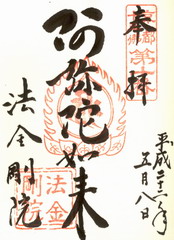 奉拝
平成二十二年
五月八日
阿弥陀如来
法金剛院
法金
剛院